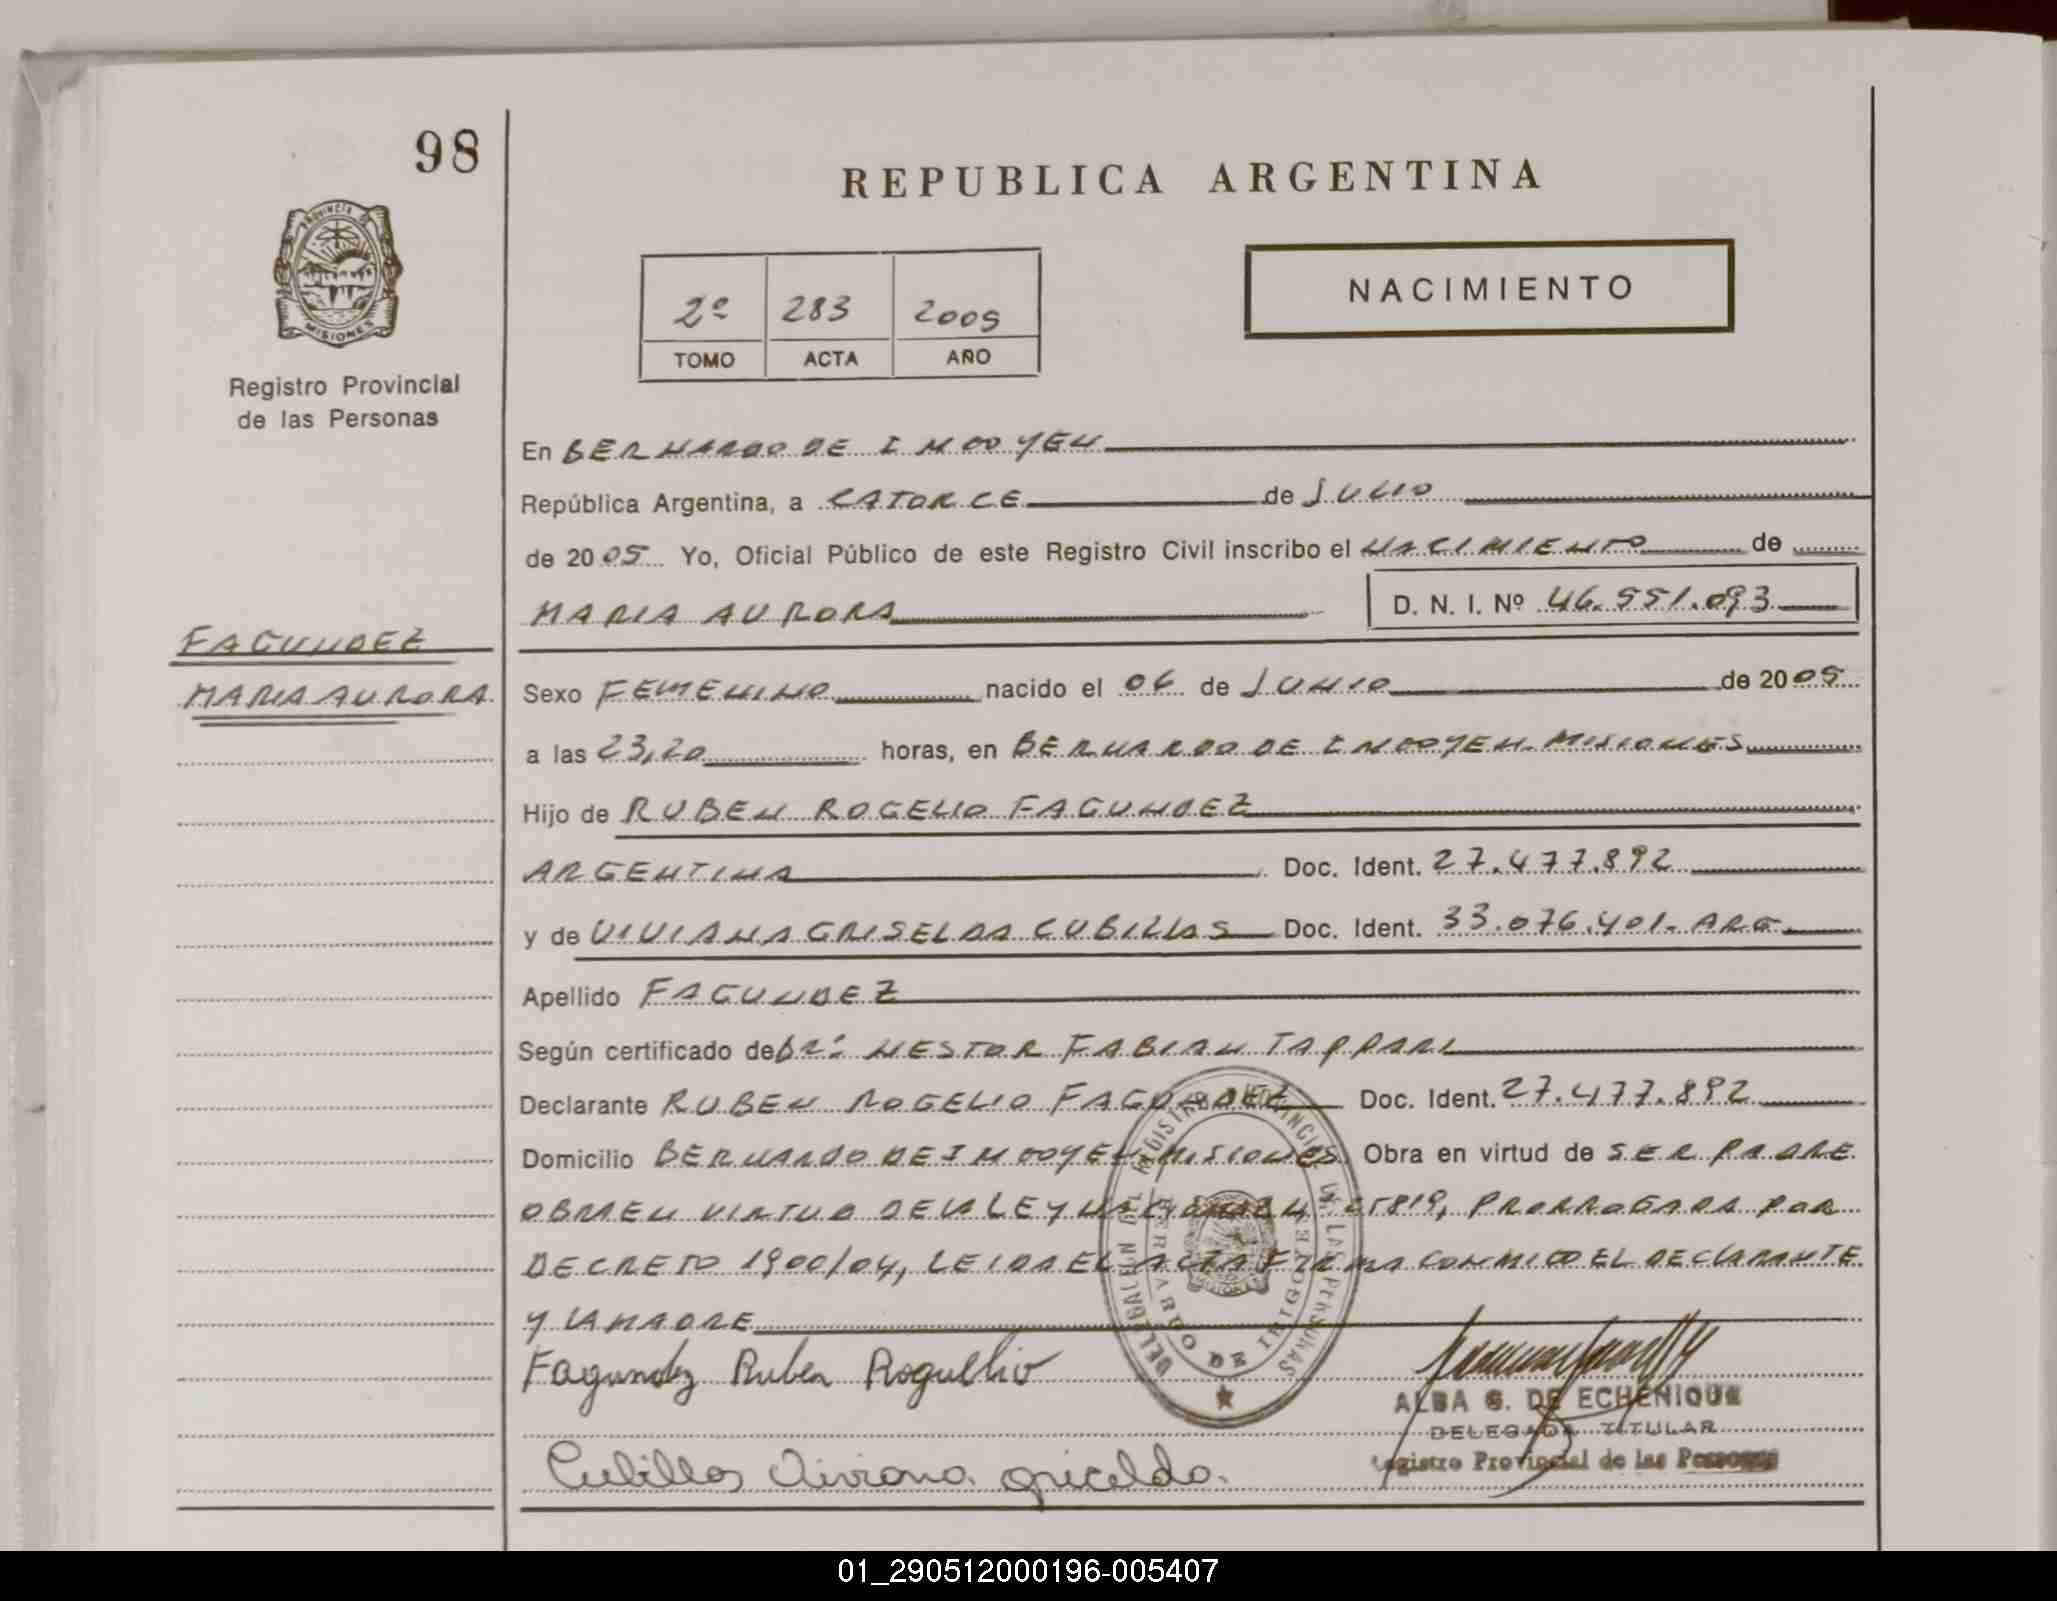 98
REPUBLICA ARGENTINA
PROVINCIA DE
MISIONES
Registro Provincial
de las Personas
NACIMIENTO
2º 283 2005
TOMO ACTA AÑO
En BERNARDO DE IRIGOYEN
República Argentina, a CATORCE de JULIO
de 2005 Yo, Oficial Público de este Registro Civil inscribo el NACIMIENTO de
MARIA AURORA D. N. I. Nº 46.551.093
FAGUNDEZ
MARIA AURORA
Sexo FEMENINO nacido el 06 de JUNIO de 2005
a las 23,20 horas, en BERNARDO DE IRIGOYEN. MISIONES
Hijo de RUBEN ROGELIO FAGUNDEZ
ARGENTINA Doc. Ident. 27.477.892
y de VIVIANA GRISELDA CUBILLAS Doc. Ident. 33.076.401. ARG.
Apellido FAGUNDEZ
Según certificado de Dr. NESTOR FABIAN TAPPARI
Declarante RUBEN ROGELIO FAGUNDEZ Doc. Ident. 27.477.892
Domicilio BERNARDO DE IRIGOYEN. MISIONES Obra en virtud de SER PADRE
OBRA EN VIRTUD DE LA LEY NACIONAL N 25819, PRORROGADA POR
DECRETO 1900/04, LEIDA EL ACTA FIRMA CONMIGO EL DECLARANTE
Y LA MADRE
Fagundez Ruben Rogellio
DELEGACION DEL REGISTRO PROVINCIAL DE LAS PERSONAS
BERNARDO DE IRIGOYEN
ALBA G. DE ECHENIQUE
DELEGADA TITULAR
Registro Provincial de las Personas
Cubillas Viviana griselda.
01_290512000196-005407